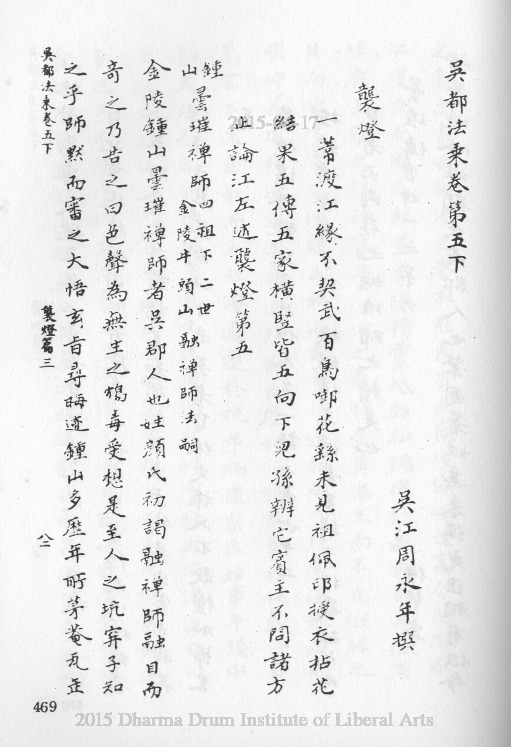 吳都法乘卷第五下
吳江周永年撰
襲燈
一葦渡江緣不契武百鳥啣花緣未見祖佩印授衣拈花
結果五傳五家橫豎皆五向下兒孫辨它賓主不問諸方
止論江左述襲燈第五
鍾山曇璀禪師四祖下二世金陵牛頭山融禪師法嗣
金陵鍾山曇璀禪師者吳郡人也姓顏氏初謁融禪師融目而
奇之乃告之曰色聲為無生之鴆毒受想是至人之坑穽子知
之乎師默而審之大悟玄旨尋晦迹鍾山多歷年所茅菴瓦缶
吳都法乘卷五下
襲燈篇三
八二
469
2015 Dharma Drum Institute of Liberal Arts